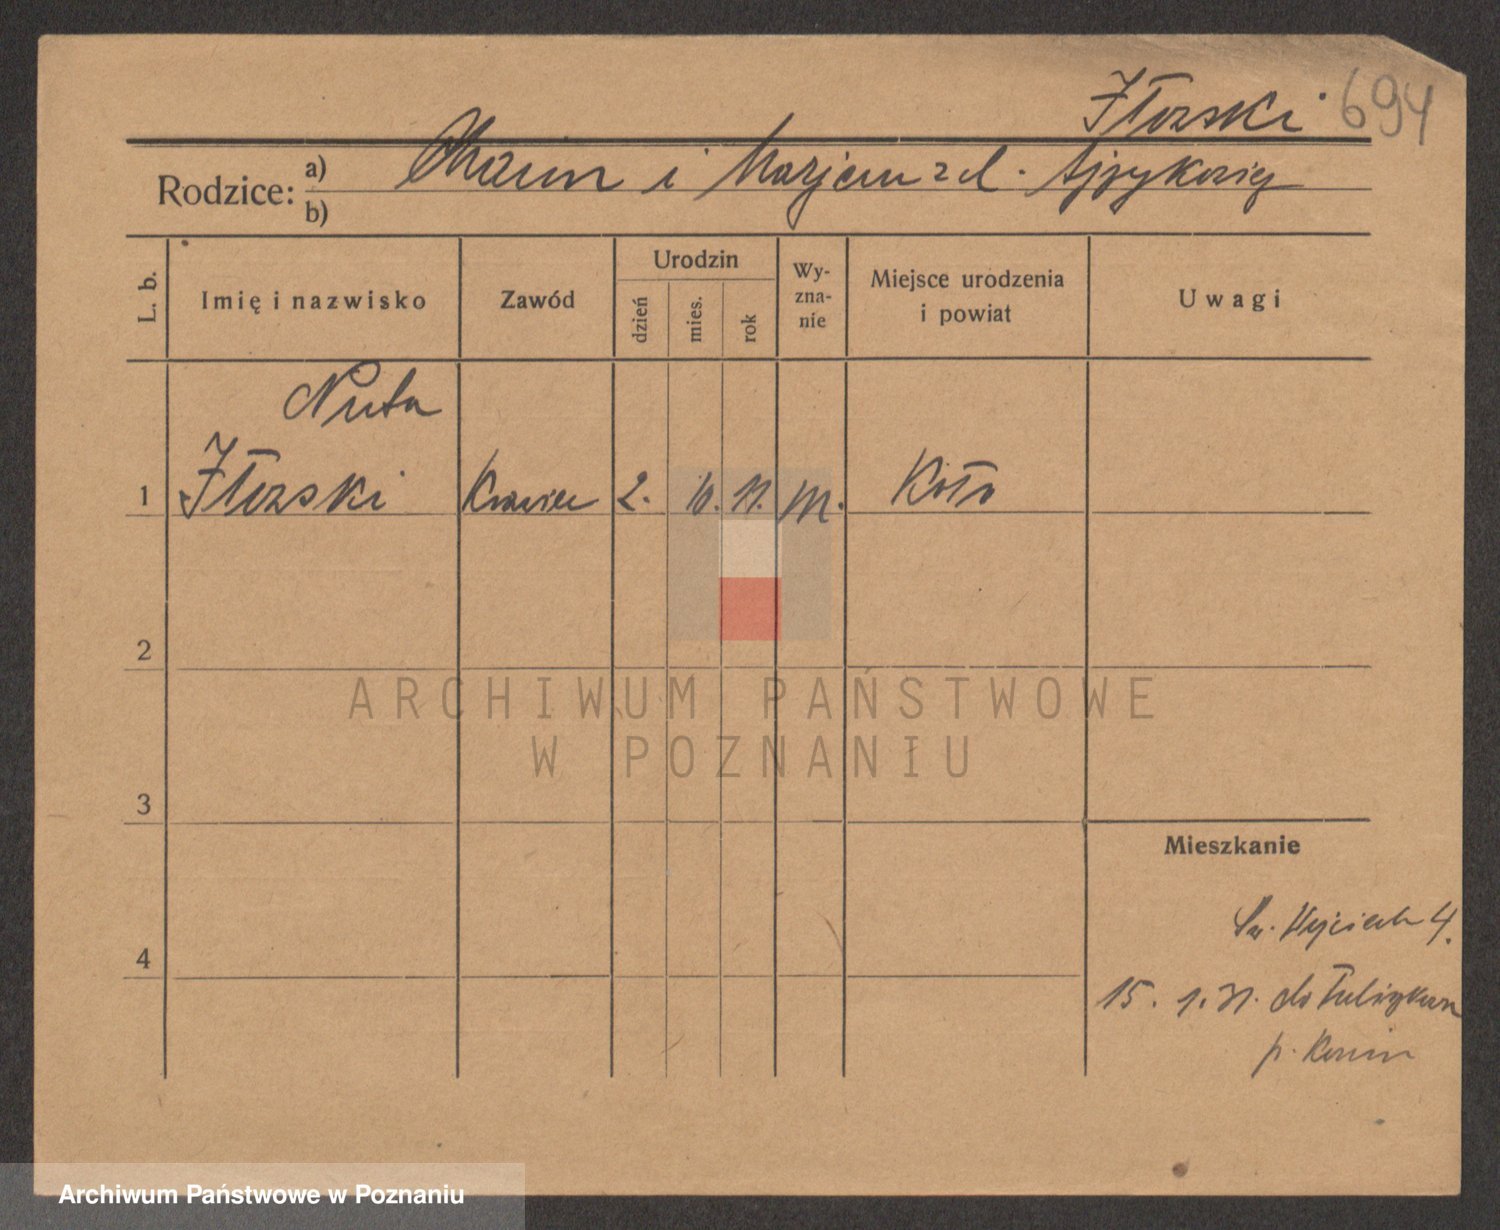 694
Rodzice: a) i
b)
L. b.
Imię i nazwisko
Zawód
Urodzin
dzień
mies.
rok
Wy-
zna-
nie
Miejsce urodzenia
i powiat
Uwagi
Nuta
1 Krawiec 2. 10. 11. m. Koło
2
3
4
Mieszkanie
Św. Wojciech 4.
15. 1. 31. do
p. Konin
ARCHIWUM PAŃSTWOWE
W POZNANIU
Archiwum Państwowe w Poznaniu